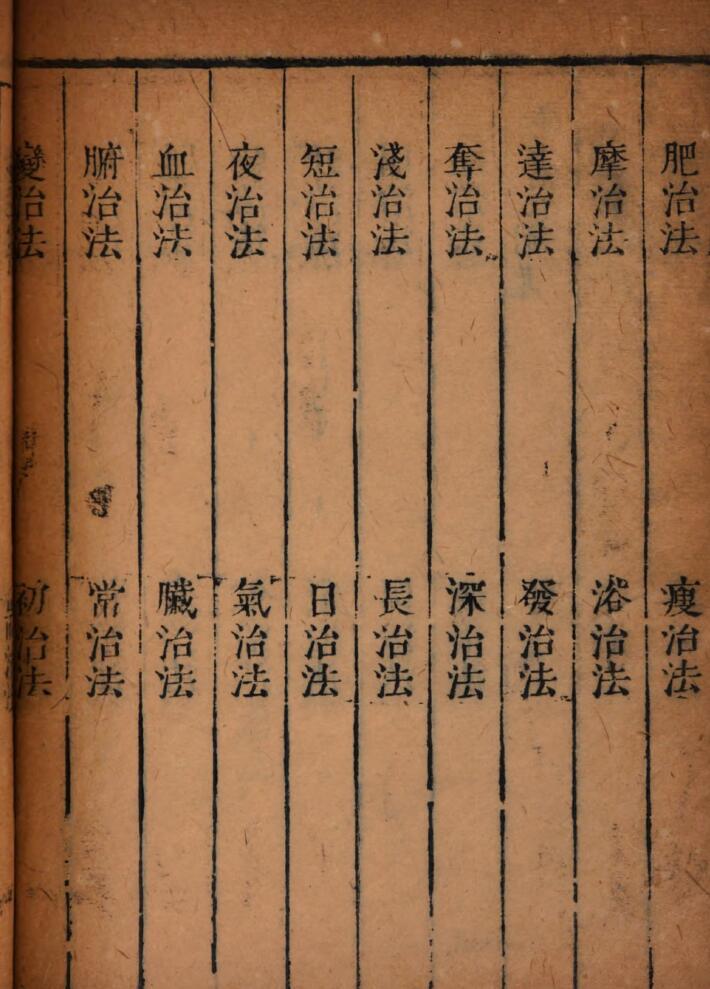 肥治法 瘦治法
摩治法 浴治法
達治法 發治法
奪治法 深治法
淺治法 長治法
短治法 日治法
夜治法 氣治法
血治法 臟治法
腑治法 常治法
變治法 初治法